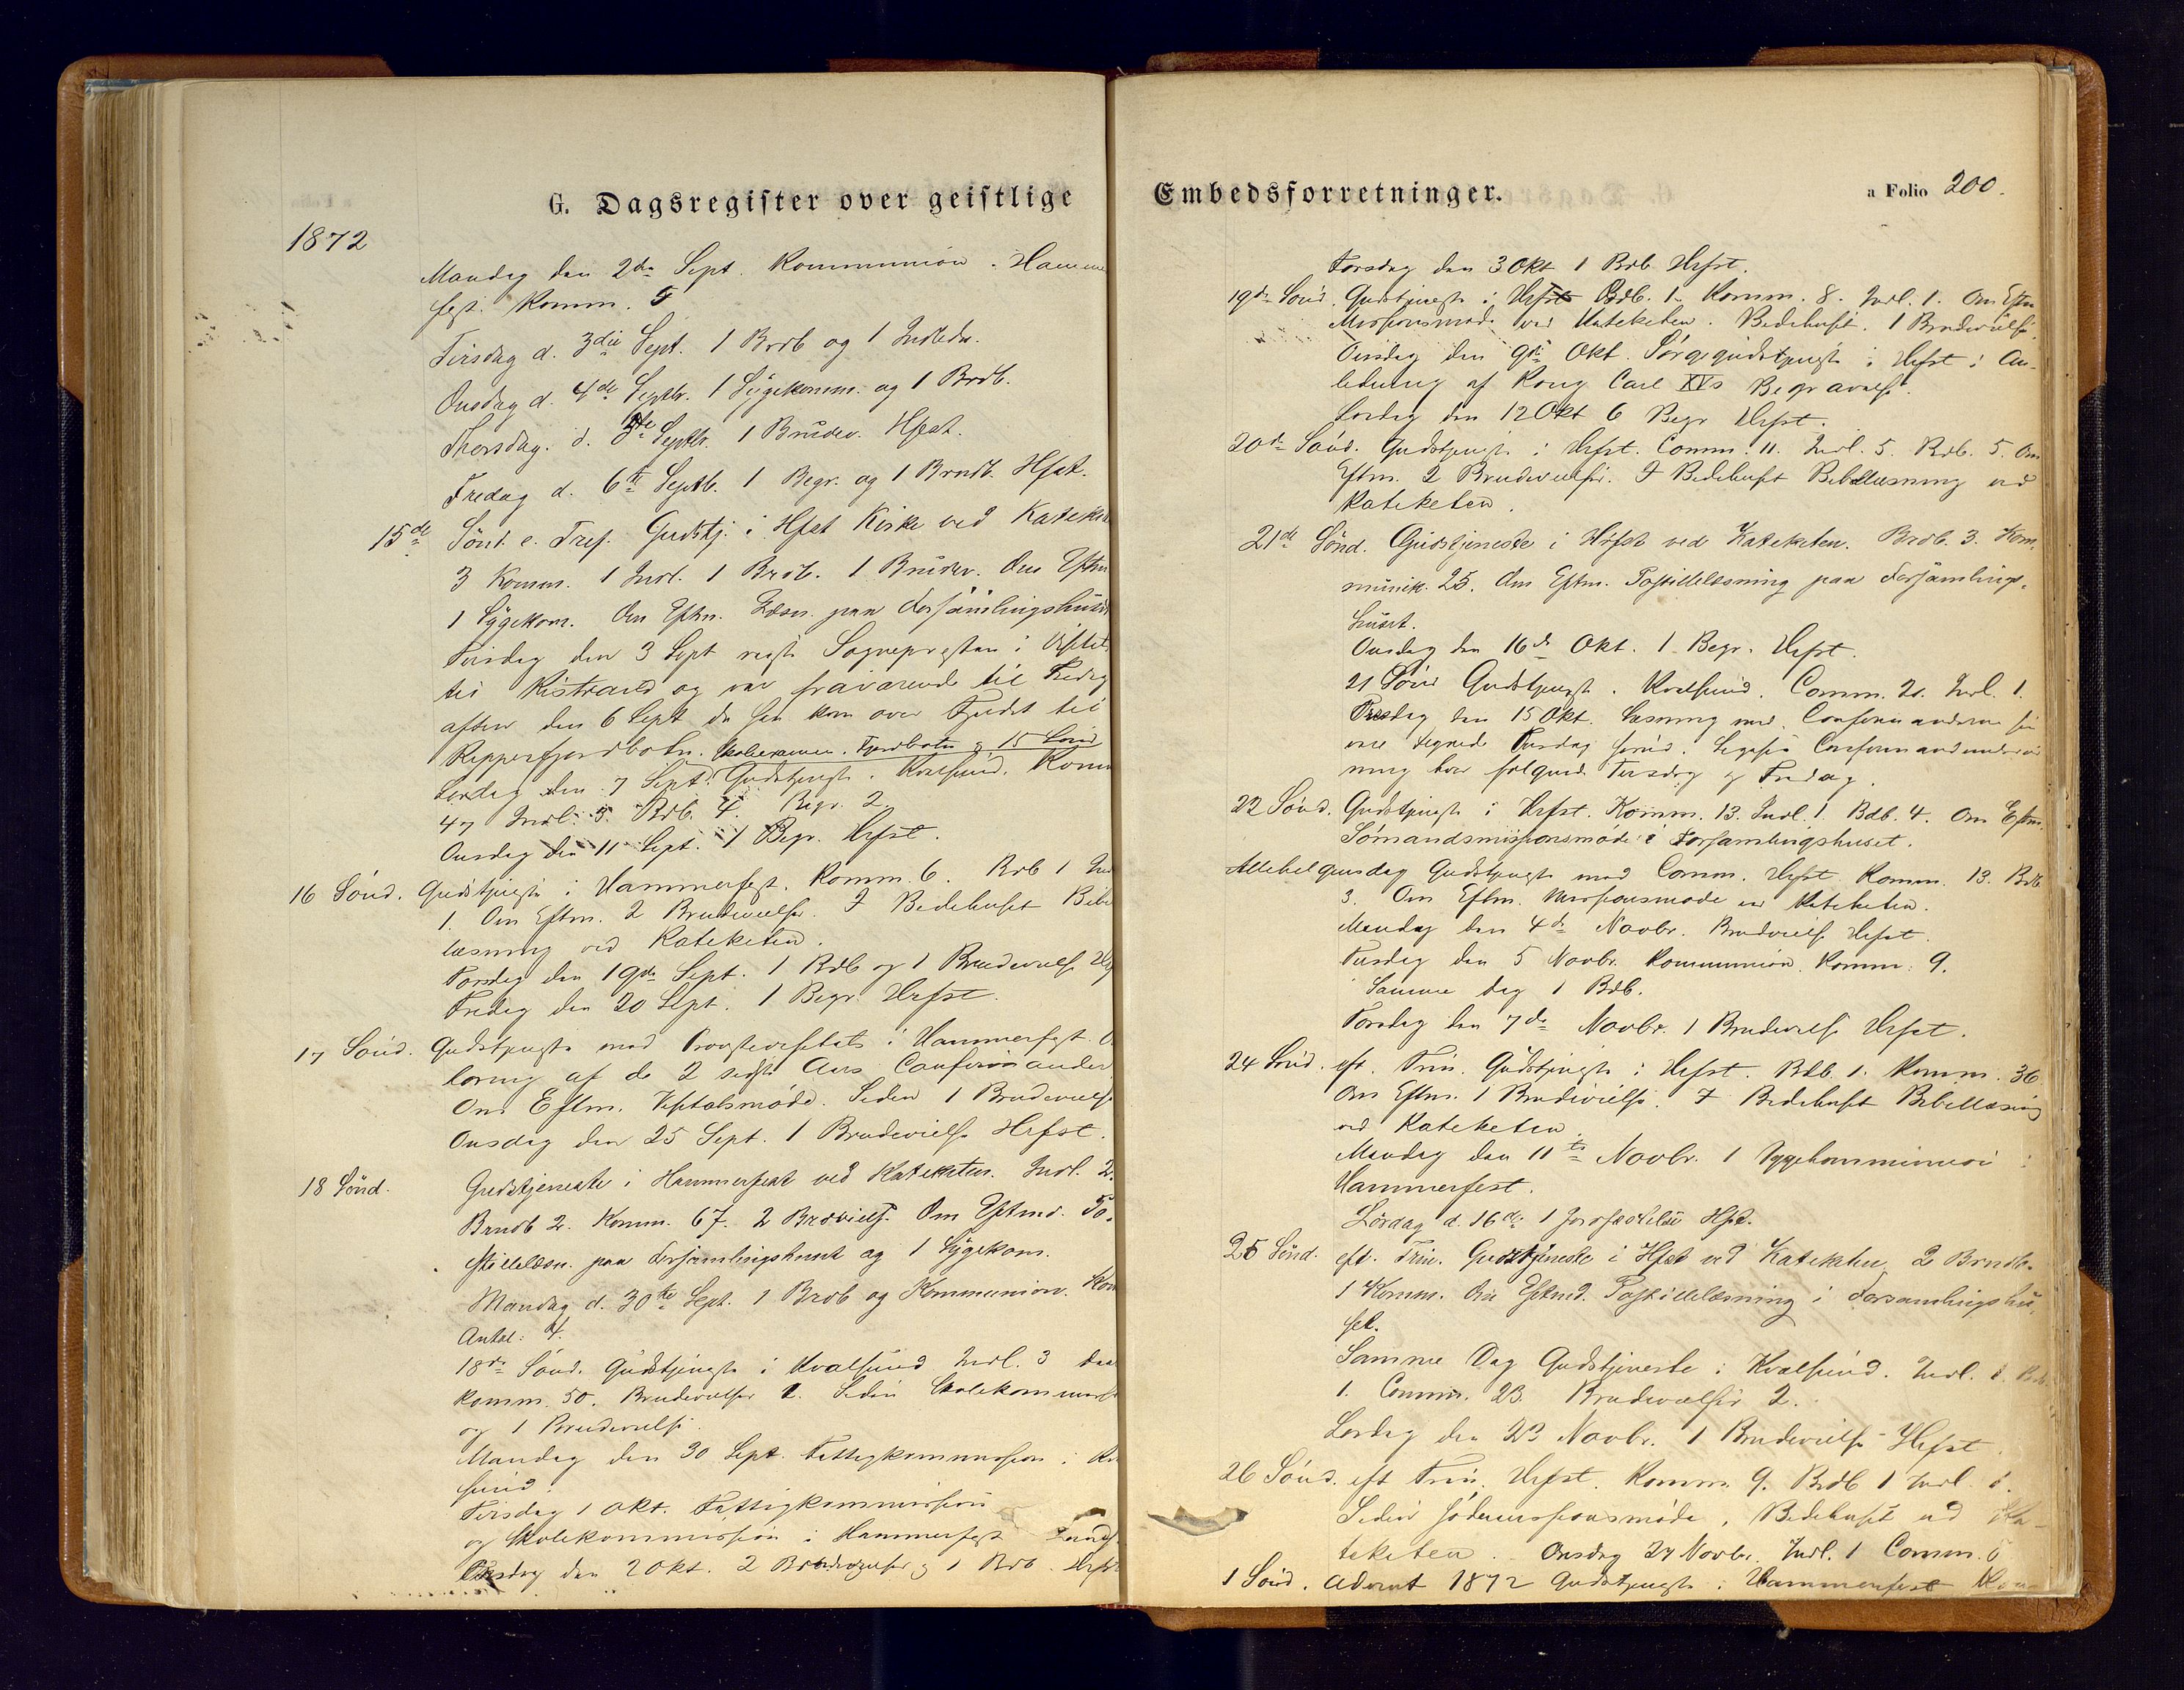 G. Dagsregister over geistlige
1872
Mandag den 2den Sept. Kommunion i Hamme
fest. Komm. 5
Tirsdag d. 3die Sept. 1 Brdb og 1 Indledn.
Onsdag d. 4de Septbr. 1 Sygekomm. og 1 Brdb.
Thorsdag. d. 5te Septbr. 1 Brudev. Hfest.
Fredag d. 6te Septb. 1 Begr. og 1 Brndb. Hfst.
15de Sönd. e. Tref. Gudstj. i Hfest Kirke ved Kateke
3 Komm. 1 Indl. 1 Brdb. 1 Brudev. Om Eftm
1 Sygekom. Om Eftm. Læsn. paa Forsamlingshuset
Tirsdag den 3 Sept reiste Sognepresten i Visitats
til Kistrand og var fraværende til Fredag
aften den 6 Sept da han kom over Fjeldet til
Repperfjordbotn. Skolexamen i Fjordbotn og 15 Sönd
Lørdag den 7 Sept. Gudstjeneste i Kvalsund. Komm
47 Indl. 5. Bdb. 4. Begr. 2
Onsdag den 11 Sept. 1 Begr. Hrfst.
16 Sönd. Gudstjeneste i Hammerfest. Komm. 6. Bdb 1 Ind
1. Om Eftm. 2 Brudevielser. I Bedehuset Bibel
læsning ved Kateketen.
Torsdag den 19de Sept. 1 Bdb og 1 Brudevielse Hf
Fredag den 20 Sept. 1 Begr. Hrfst.
17 Sönd. Gudstjeneste med Provstevisitats i Hammerfest. O
høring af de 2 sidste Aars Confirmander
Om Eftm. Visitatsmøde. Siden 1 Brudevielse
Onsdag den 25 Sept. 1 Brudevielse Hrfst.
18 Sönd. Gudstjeneste i Hammerfest ved Kateketen. Indl. 2.
Brndb 2. Komm. 67. 2 Brdviels. Om Eftmd. Po-
stillelæsn. paa Forsamlingshuset og 1 Sygekom.
Mandag d. 30te Sept. 1 Brdb og Kommunion. Kom
Antal: 4.
18de Sönd. Gudstjeneste i Kvalsund Indl. 3 Daa
Komm. 50. Brudevielser 2. Siden Skolekommiss
og 1 Brudevielse.
Mandag den 30 Sept. Fattigkommission i Kv
sund.
Tirsdag 1 Okt. Fattigkommission
og Skolekommission i Hammerfest
Onsdag den 2 Okt. 2 Brudevielser og 1 Bdb. Hrfst
Embedsforretninger.
a Folio 200.
Torsdag den 3 Okt 1 Bdb Hrfst.
19de Sönd. Gudstjeneste i Hrfst Bdb. 1. Komm. 8. Indl. 1. Om Eftm
Missionsmøde ved Kateketen i Bedehuset. 1 Brudevielse.
Onsdag den 9de Okt. Sørgegudstjeneste i Hrfst i An-
ledning af Kong Carl XVs Begravelse.
Lørdag den 12 Okt 6 Begr Hrfst.
20de Sönd. Gudstjeneste i Hrfst. Comm. 11. Indl. 5. Bdb. 5. Om
Eftm. 2 Brudevielser. I Bedehuset Bibellæsning ved
Kateketen.
21de Sönd. Gudstjeneste i Hrfst ved Kateketen. Brdb. 3. Kom-
munik. 25. Om Eftm. Postillelæsning paa Forsamlings-
huset.
Onsdag den 16de Okt. 1 Begr. Hrfst.
21 Sönd Gudstjeneste i Kvalsund. Comm. 20. Indl. 1.
Tirsdag den 15 Okt. Læsning med Confirmanderne
Tirsdag forud. Ligesaa Confirmandundervis
ning hver følgende Tirsdag og Fredag.
22 Sönd. Gudstjeneste i Hrfst. Komm. 13. Indl. 1. Bdb. 4. Om Eftm.
Sömandsmissionsmøde i Forsamlingshuset.
Allehelgensdag Gudstjeneste med Comm. Hrfst Komm. 13. Bdb
3. Om Eftm. Missionsmøde ved Kateketen.
Mandag den 4de Novbr. Brudvielse Hrfst.
Tirsdag den 5 Novbr. Kommunion. Komm. 9.
Samme dag 1 Bdb.
Torsdag den 7de Novbr. 1 Brudevielse Hrfst.
24 Sönd. eft. Trin. Gudstjeneste i Hrfst. Bdb. 1. Komm. 36
Om Eftm. 1 Brudevielse. I Bedehuset Bibellæsning
ved Kateketen.
Mandag den 11te Novbr. 1 Sygekommunion i
Hammerfest.
Lördag d. 16de 1 Jordfæstelse Hfst.
25 Sönd. eft. Trin. Gudstjeneste i Hfst ved Kateketen 2 Brndb.
1 Komm. Om Eftmd. Postillelæsning i Forsamlingshu-
set.
Samme Dag Gudstjeneste i Kvalsund. Indl. 1. Bdb.
1. Comm. 23. Brudevielser 2.
Lørdag den 23 Novbr. 1 Brudevielse Hrfst
26 Sönd. eft Trin. Hrfst. Komm. 9. Bdb 1 Indl. 1.
Siden Jødemissionsmøde i Bedehuset ved Ka-
teketen. Onsdag 27 Novbr. Indl. 1 Comm. 6
1 Sönd. Advent 1872 Gudstjeneste i Hammerfest Kom